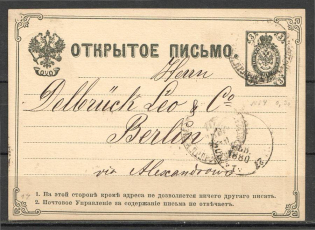 ОТКРЫТОЕ ПИСЬМО.
Herrn
Delbrück Leo & Co
Berlin
via Alexandrowo
1. На этой сторонѣ кромѣ адреса не дозволяется ничего другаго писать.
2. Почтовое Управленіе за содержаніе письма не отвѣчаетъ.